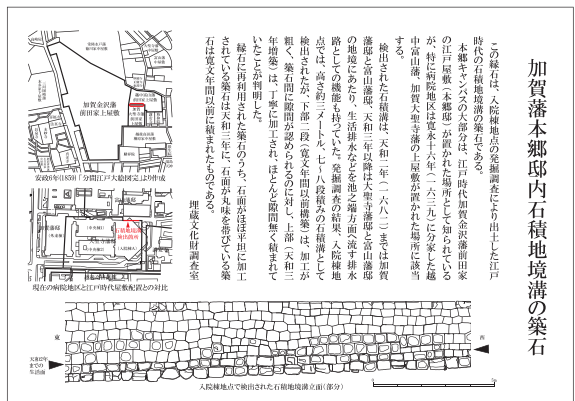 加賀藩本郷邸内石積地境溝の築石
この縁石は、入院棟地点の発掘調査により出土した江戸
時代の石積地境溝の築石である。
本郷キャンパスの大部分は、江戸時代加賀金沢藩前田家
の江戸屋敷(本郷邸)が置かれた場所として知られている
が、特に病院地区は寛永十六年(一六三九)に分家した越
中富山藩、加賀大聖寺藩の上屋敷が置かれた場所に該当
する。
検出された石積溝は、天和二年(一六八二)までは加賀
藩邸と富山藩邸、天和三年以降は大聖寺藩邸と富山藩邸
の地境にあたり、生活排水などを池之端方面へ流す排水
路としての機能も持っていた。発掘調査の結果、入院棟地
点では、高さ約三メートル、七〜八段積みの石積溝として
検出されたが、下部二段(寛文年間以前構築)は、加工が
粗く、築石間に隙間が認められるのに対し、上部(天和三
年増築)は、丁寧に加工され、ほとんど隙間無く積まれて
いたことが判明した。
縁石に再利用された築石のうち、石面がほぼ平坦に加工
されている築石は天和三年に、石面が丸味を帯びている築
石は寛文年間以前に積まれたものである。
埋蔵文化財調査室
加賀金沢藩
前田家上屋敷
安政6年(1859)「分間江戸大絵図完」より作成
石積地境溝
検出箇所
現在の病院地区と江戸時代屋敷配置との対比
東
西
天和2年
までの
生活面
入院棟地点で検出された石積地境溝立面(部分)